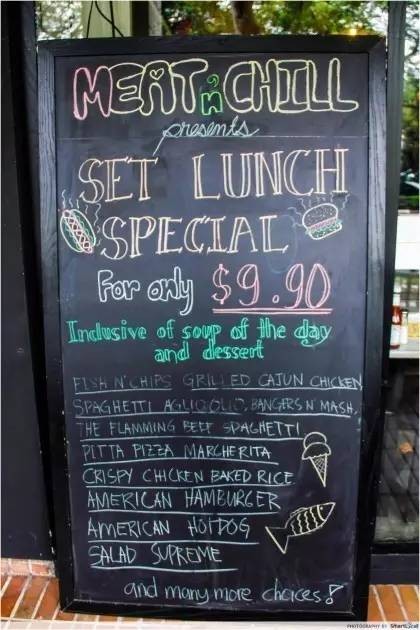 MEAT n' CHILL
presents
SET LUNCH
SPECIAL
For only $9.90
Inclusive of soup of the day
and dessert
FISH N' CHIPS GRILLED CAJUN CHICKEN
SPAGHETTI AGLIO OLIO, BANGERS N' MASH,
THE FLAMMING BEEF SPAGHETTI
PITTA PIZZA MARGHERITA
CRISPY CHICKEN BAKED RICE
AMERICAN HAMBURGER
AMERICAN HOTDOG
SALAD SUPREME
and many more choices!
PHOTOGRAPHY BY